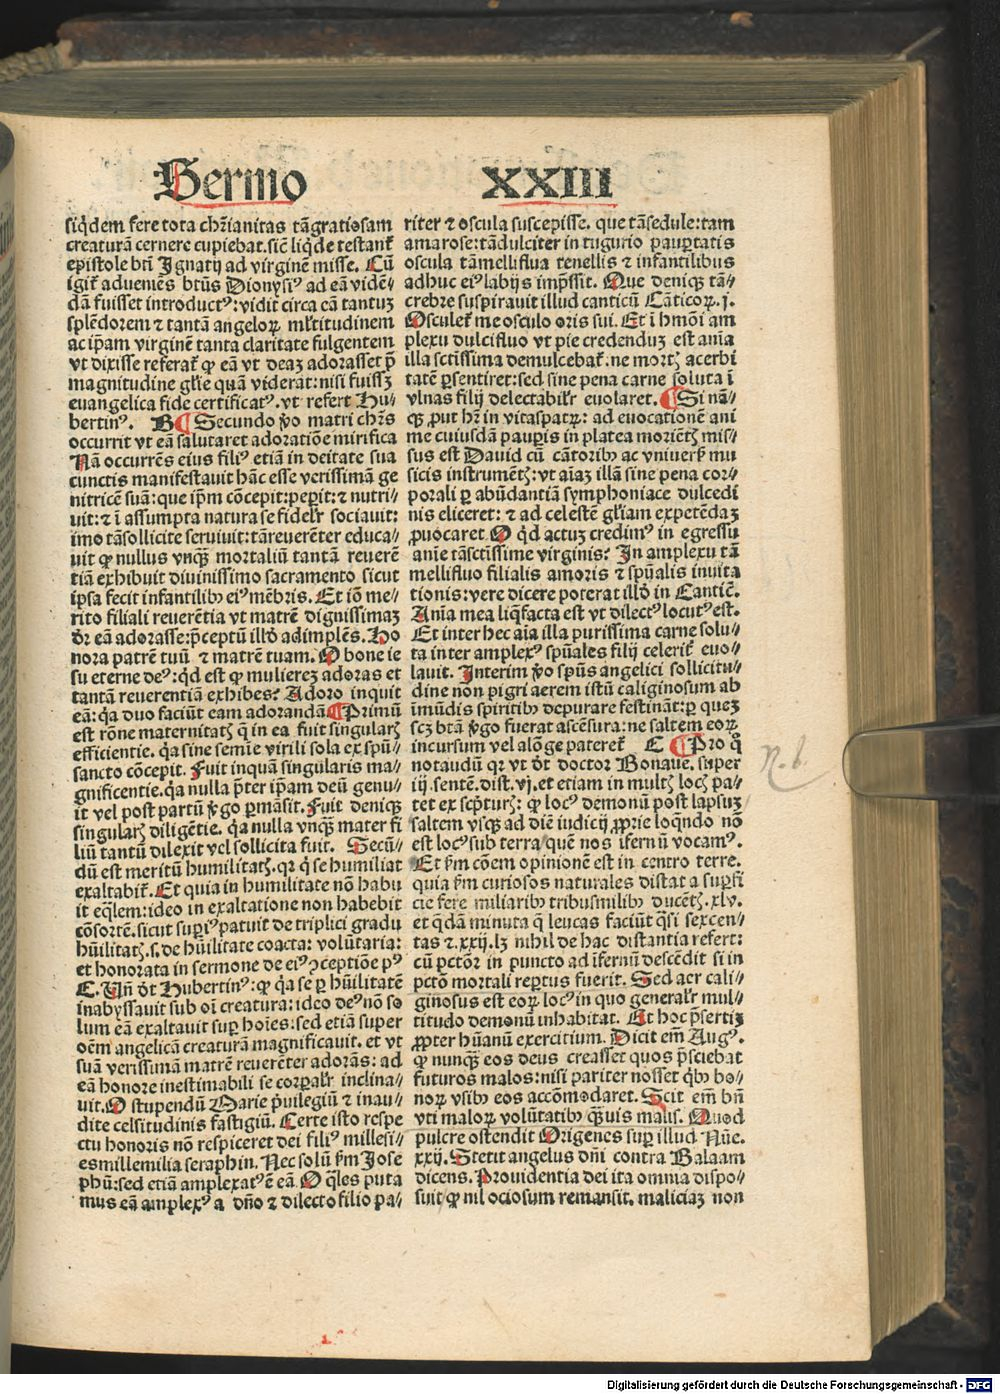 Sermo XXIII
siq̃dem fere tota chr̃ianitas tã gratiosam
creaturã cernere cupiebat. sic̃ liq̃de testant᷑
epistole bt̃i Ignatij ad virginẽ misse. Cũ
igit᷑ adueniẽs bt̃us Dionysiꝰ ad eã vidẽ⸗
dã fuisset introductꝰ: vidit circa eã tantuꝫ
splẽdorem ⁊ tantã angeloꝝ ml̃titudinem
ac ip̃am virginẽ tanta claritate fulgentem
vt dixisse referat᷑ ꝙ eã vt deaꝫ adorasset p̃
magnitudine gl̃ie quã viderat: nisi fuissꝫ
euangelica fide certificatꝰ. vt refert Hu⸗
bertinꝰ. B ¶ Secundo ꝟo matri chr̃s
occurrit vt eã salutaret adoratiõe mirifica
Nã occurrẽs eius filiꝰ etiã in deitate sua
cunctis manifestauit hãc esse verissimã ge
nitricẽ suã: que ip̃m cõcepit: peꝑit: ⁊ nutri⸗
uit: ⁊ ĩ assumpta natura se fidelr̃ sociauit:
imo tã sollicite seruiuit: tã reuerẽter educa⸗
uit ꝙ nullus vnqꝫ mortaliũ tantã reuerẽ
tiã exhibuit diuinissimo sacramento sicut
ipsa fecit infantilibꝰ eiꝰ mẽbris. Et iõ me⸗
rito filiali reuerẽtia vt matrẽ dignissimaꝫ
dr̃ eã adorasse: p̃ceptũ illd̃ adimplẽs. Ho
nora patrẽ tuũ ⁊ matrẽ tuam. O bone ie
su eterne deꝰ: qd̃ est ꝙ muliereꝫ adoras et
tantã reuerentiã exhibes? Adoro inquit
eã: q̃a duo faciũt eam adorandã ¶ Primũ
est rõne maternitatꝭ q̃ in ea fuit singularꝭ
efficientie. q̃a sine semĩe virili sola ex spũ⸗
sancto cõcepit. Fuit inquã singularis ma⸗
gnificentie. q̃a nulla p̃ter ip̃am deũ genu⸗
it vel post partũ ꝟgo ꝑmãsit. Fuit deniqꝫ
singularꝭ diligẽtie. q̃a nulla vnqꝫ mater fi
liũ tantũ dilexit vel sollicita fuit. Secũ⸗
dũ est meritũ humilitatꝭ. qꝛ q̃ se humiliat
exaltabit᷑. Et quia in humilitate nõ habu
it eq̃lem: ideo in exaltatione non habebit
cõsortẽ. sicut suꝑiꝰ patuit de triplici gradu
hũilitatꝭ. s. de hũilitate coacta: volũtaria:
et honorata in sermone de eiꝰ ꝯceptiõe pꝰ
C. Vñ dt̃ Hubertinꝰ: ꝙ q̃a se ꝑ hũilitatẽ
inabyssauit sub oĩ creatura: ideo deꝰ nõ so
lum eã exaltauit suꝑ hoĩes: sed etiã super
oẽm angelicã creaturã magnificauit. et vt
suã verissimã matrẽ reuerẽter adorãs: ad
eã honore inestimabili se corꝑalr̃ inclina⸗
uit. O stupendũ Marie p̃uilegiũ ⁊ inau⸗
dite celsitudinis fastigiũ. Certe isto respe
ctu honoris nõ respiceret dei filiꝰ millesi⸗
es millemilia seraphin. Nec solũ ẜm Jose
phũ: sed etiã amplexatꝰ ẽ eã. O q̃les puta
mus eã amplexꝰ a dño ⁊ dilecto filio pa⸗
riter ⁊ oscula suscepisse. que tã sedule: tam
amarose: tã dulciter in tugurio pauꝑtatis
oscula tã melliflua tenellis ⁊ infantilibus
adhuc eiꝰ labijs imp̃ssit. Que deniqꝫ tã⸗
crebre suspirauit illud canticũ Cãticoꝝ. j.
Osculet᷑ me osculo oris sui. Et ĩ hmõi am
plexu dulcifluo vt pie credenduꝫ est aĩa
illa sctĩssima demulcebat᷑: ne mortꝭ acerbi
tatẽ ꝑsentiret: sed sine pena carne soluta ĩ
vlnas filij delectabilr̃ euolaret. ¶ Si nã⸗
qꝫ ꝓut hr̃ in vitaspatꝝ: ad euocationẽ ani
me cuiusdã pauꝑis in platea moriẽtꝭ mis⸗
sus est Dauid cũ cãtoribꝰ ac vniuers̃ mu
sicis instrumẽtꝭ: vt aĩaꝫ illã sine pena cor⸗
porali ꝑ abũdantiã symphoniace dulcedi
nis eliceret: ⁊ ad celestẽ gl̃iam expetẽdaꝫ
ꝓuocaret. O qd̃ actuꝫ credimꝰ in egressu
anĩe tã sctĩssime virginis? In amplexu tã
mellifluo filialis amoris ⁊ spũalis inuita
tionis: vere dicere poterat illd̃ in Canticꝭ.
Anĩa mea liq̃facta est vt dilectꝰ locutꝰ est.
Et inter hec aĩa illa purissima carne solu⸗
ta inter amplexꝰ spũales filij celerit᷑ euo⸗
lauit. Interim ꝟo spũs angelici sollicitu⸗
dine non pigri aerem istũ caliginosum ab
ĩmũdis spiritibꝰ depurare festinãt: ꝑ queꝫ
scꝫ btã ꝟgo fuerat ascẽsura: ne saltem eoꝝ
incursum vel alõge pateret᷑ C ¶ Pro q̃
notaudũ qꝛ vt dt̃ doctor Bonaue. super
iij. sentẽ. dist. vj. et etiam in multꝭ locꝭ pa⸗
tet ex scpturꝭ: ꝙ locꝰ demonũ post lapsuꝫ
saltem vsqꝫ ad diẽ iudicij ꝓprie loq̃ndo nõ
est locꝰ sub terra quẽ nos ĩfernũ vocamꝰ.
Et ẜm cõem opinionẽ est in centro terre.
quia ẜm curiosos naturales distat a suꝑfi
cie fere miliaribꝰ tribusmilibꝰ ducẽtꝭ. xlv.
et q̃dã minuta q̃ leucas faciũt q̃si sexcen⸗
tas ⁊. xxij. lꝫ nihil de hac distantia refert:
cũ pctõr in puncto ad ĩfernũ descẽdit si in
pctõ mortali reꝑtus fuerit. Sed aer cali⸗
ginosus est eoꝝ locꝰ in quo generalr̃ mul⸗
titudo demonũ inhabitat. Et hoc p̃sertiꝫ
ꝓpter hũanũ exercitium. Dicit em̃ Augꝰ.
ꝙ nunqꝫ eos deus creasset quos p̃sciebat
futuros malos: nisi pariter nosset qbꝰ bo⸗
noꝝ vsibꝰ eos accõmodaret. Scit em̃ bñ
vti maloꝝ volũtatibꝰ q̃uis malis. Quod
pulcre ostendit Origenes suꝑ illud Nũe.
xxij. Stetit angelus dñi contra Balaam
dicens. Prouidentia dei ita omnia dispo⸗
suit ꝙ nil ociosum remansit. maliciaꝫ non
N. b.
Digitalisierung gefördert durch die Deutsche Forschungsgemeinschaft - DFG